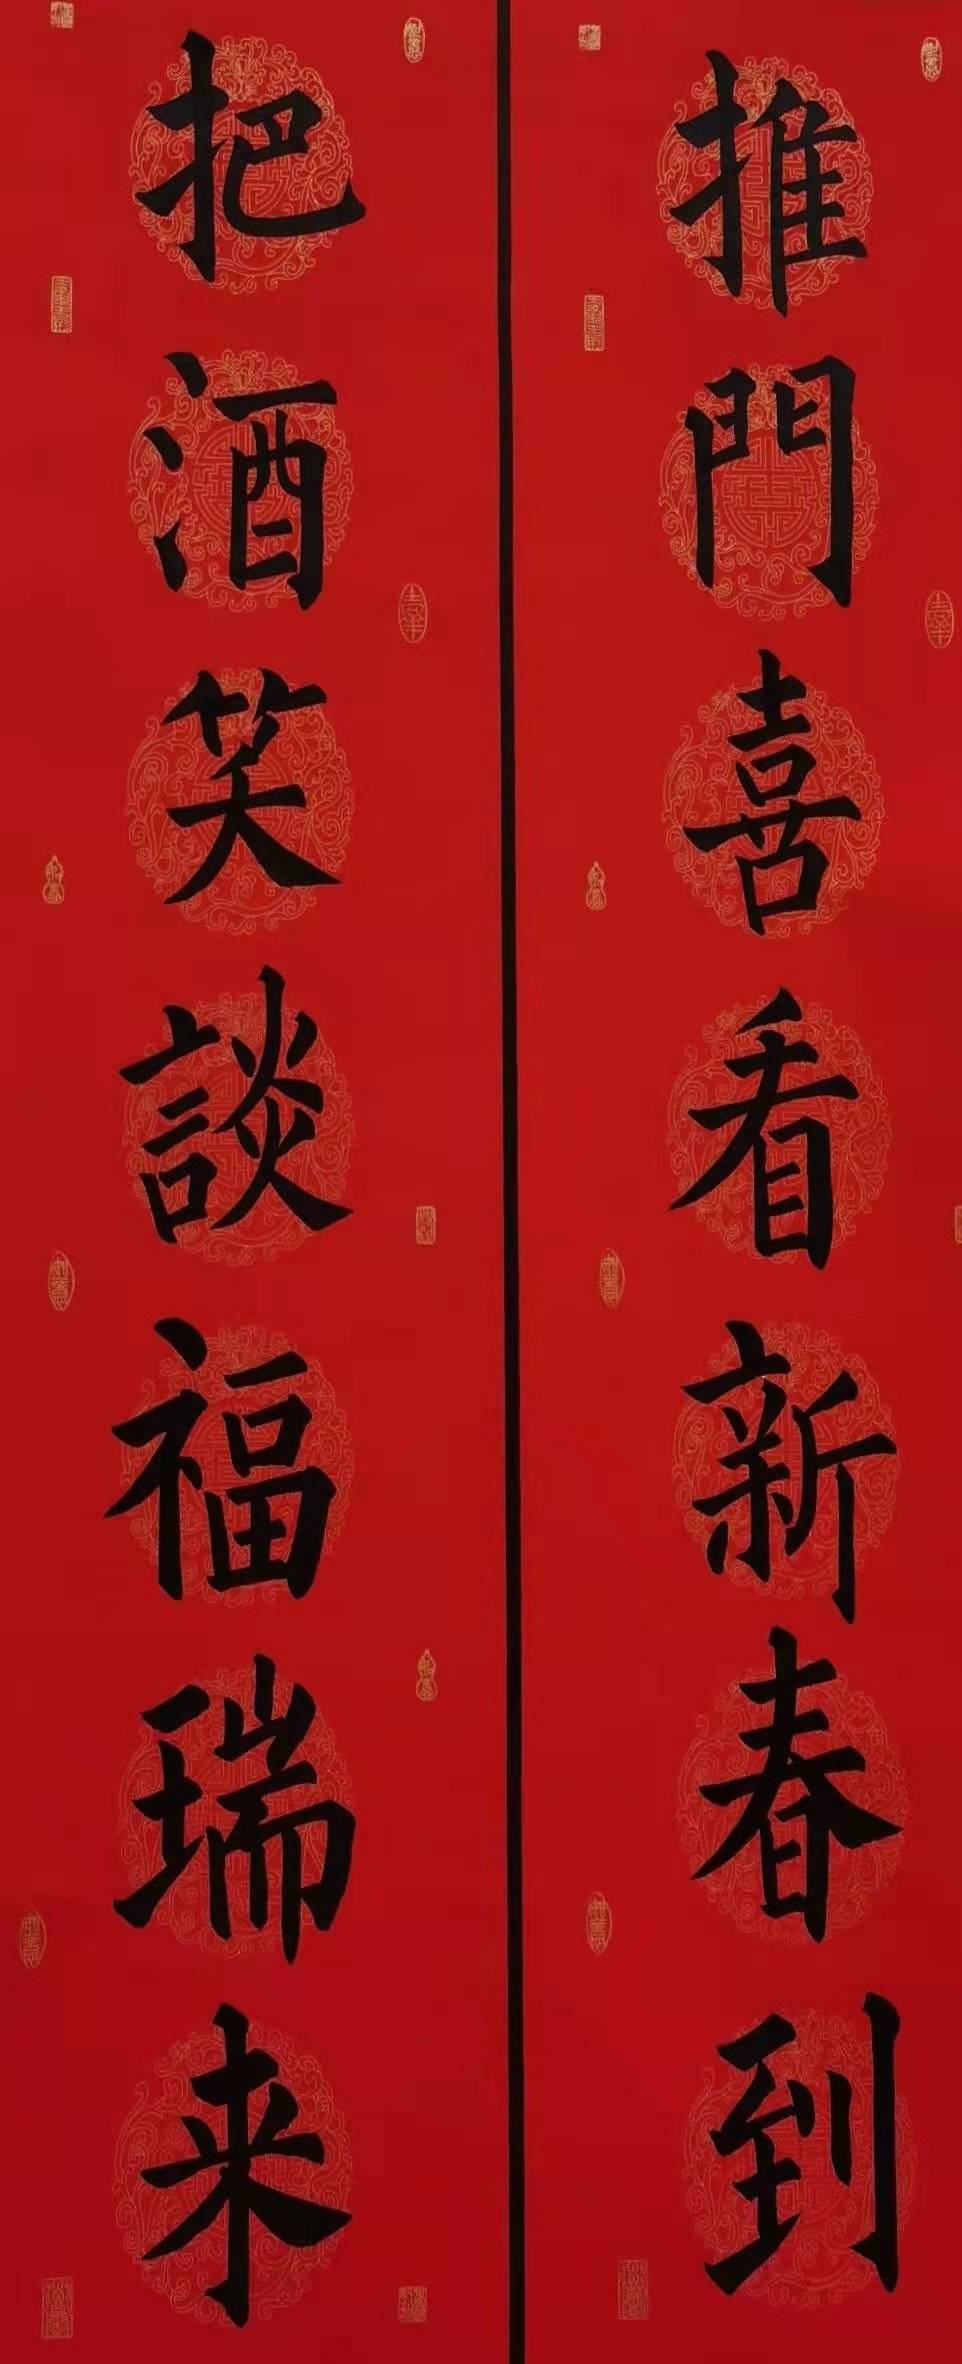 推門喜看新春到
把酒笑談福瑞来